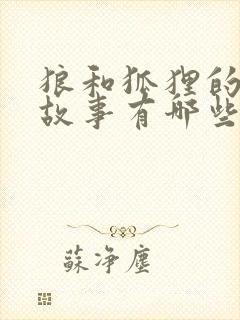 狼和狐狸的
故事有哪些
蘇净塵